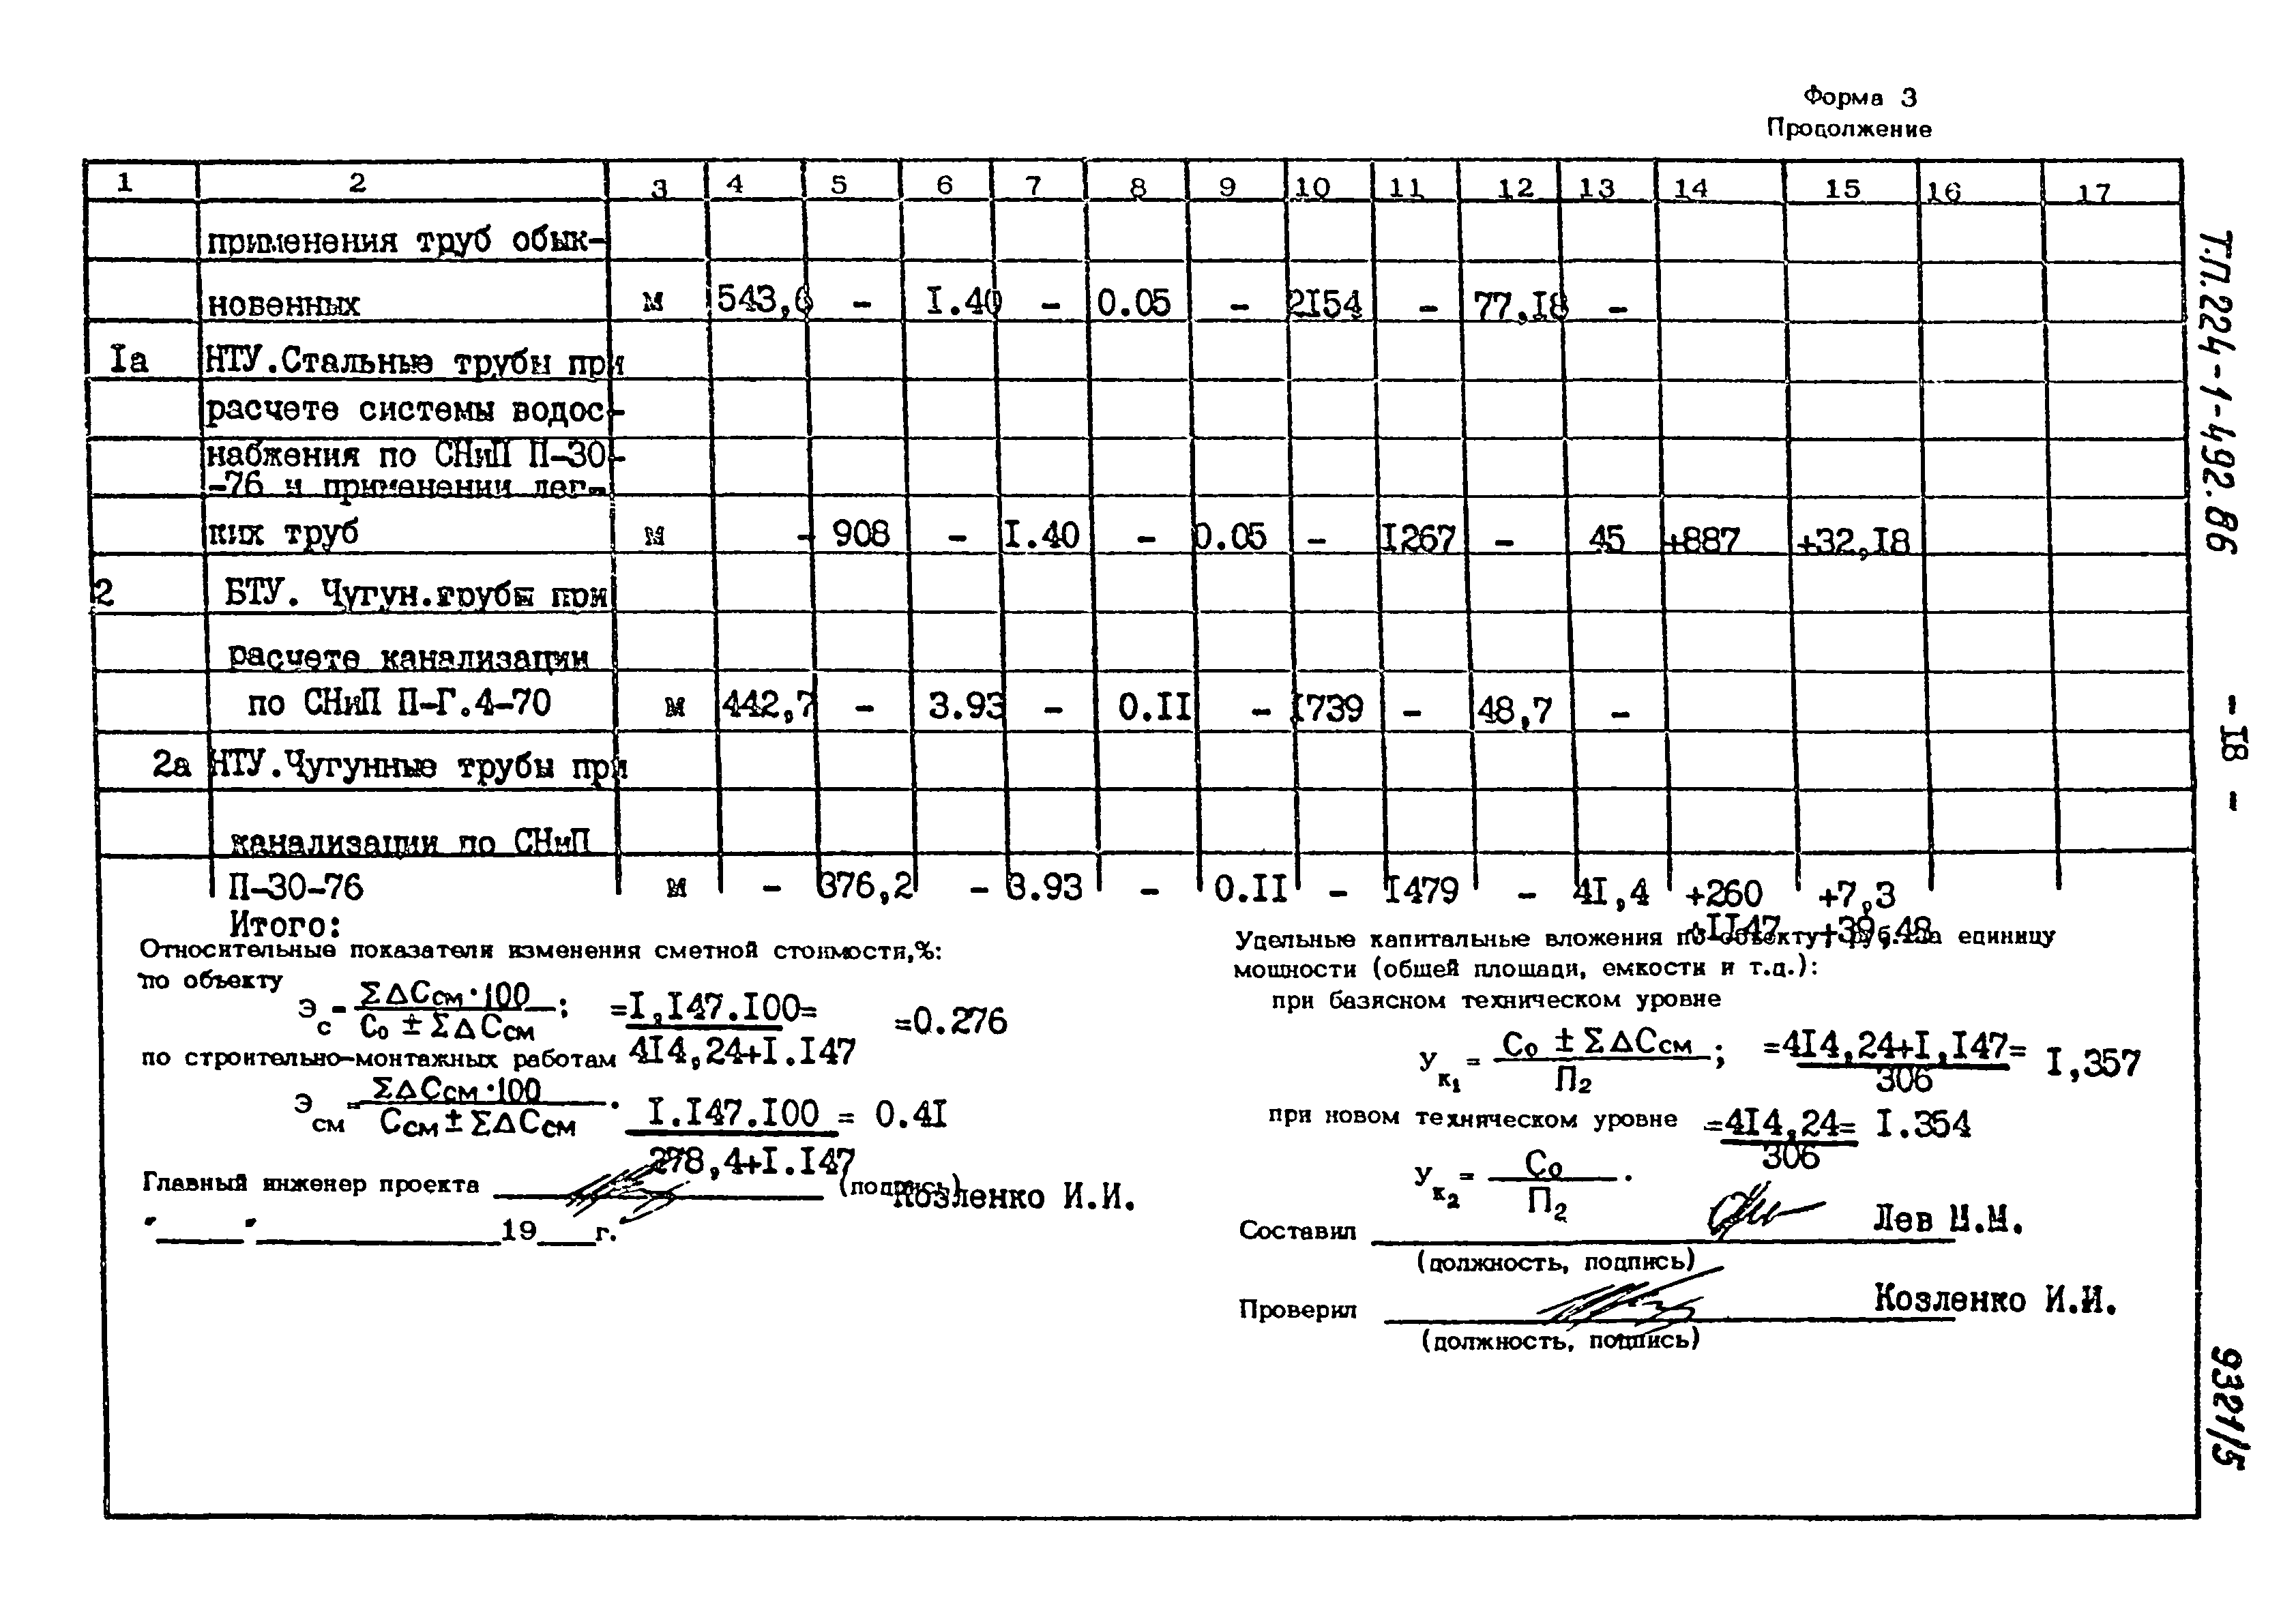 Форма 3
Продолжение
1 2 3 4 5 6 7 8 9 10 11 12 13 14 15 16 17
применения труб обык-
новенных м 543,6 - I.40 - 0.05 - 2I54 - 77,I8 -
Iа НТУ.Стальные трубы при
расчете системы водос-
набжения по СНиП П-30-
-76 и применении лег-
ких труб м - 908 - I.40 - 0.05 - I267 - 45 +887 +32,I8
2 БТУ. Чугун.трубы при
расчете канализации
по СНиП П-Г.4-70 м 442,7 - 3.93 - 0.II - I739 - 48,7 -
2а НТУ.Чугунные трубы при
канализации по СНиП
П-30-76 м - 376,2 - 3.93 - 0.II - I479 - 4I,4 +260 +7,3
Итого: +II47 +39,48
Относительные показатели изменения сметной стоимости,%:
по объекту
Эс = ΣΔCсм·100 / C₀ ± ΣΔCсм ; =I,I47.I00= / 4I4,24+I.I47 =0.276
по строительно-монтажных работам
Эсм = ΣΔCсм·100 / Cсм ± ΣΔCсм . I.I47.I00 / 278,4+I.I47 = 0.4I
Главный инженер проекта (подпись) Козленко И.И.
" " 19 г.
Удельные капитальные вложения по объекту, руб. на единицу
мощности (общей площади, емкости и т.д.):
при базисном техническом уровне
Ук₁ = C₀ ± ΣΔCсм / П₂ ; =4I4,24+I,I47= / 306 I,357
при новом техническом уровне =4I4,24= / 306 I.354
Ук₂ = C₀ / П₂ .
Составил Лев М.М.
(должность, подпись)
Проверил Козленко И.И.
(должность, подпись)
Т.П.224-1-492.86
- I8 -
9321/5